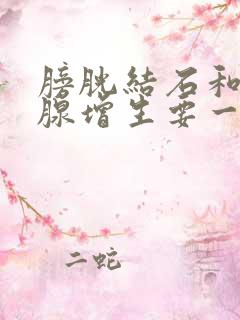 膀胱結石和
腺增生要一
二蛇